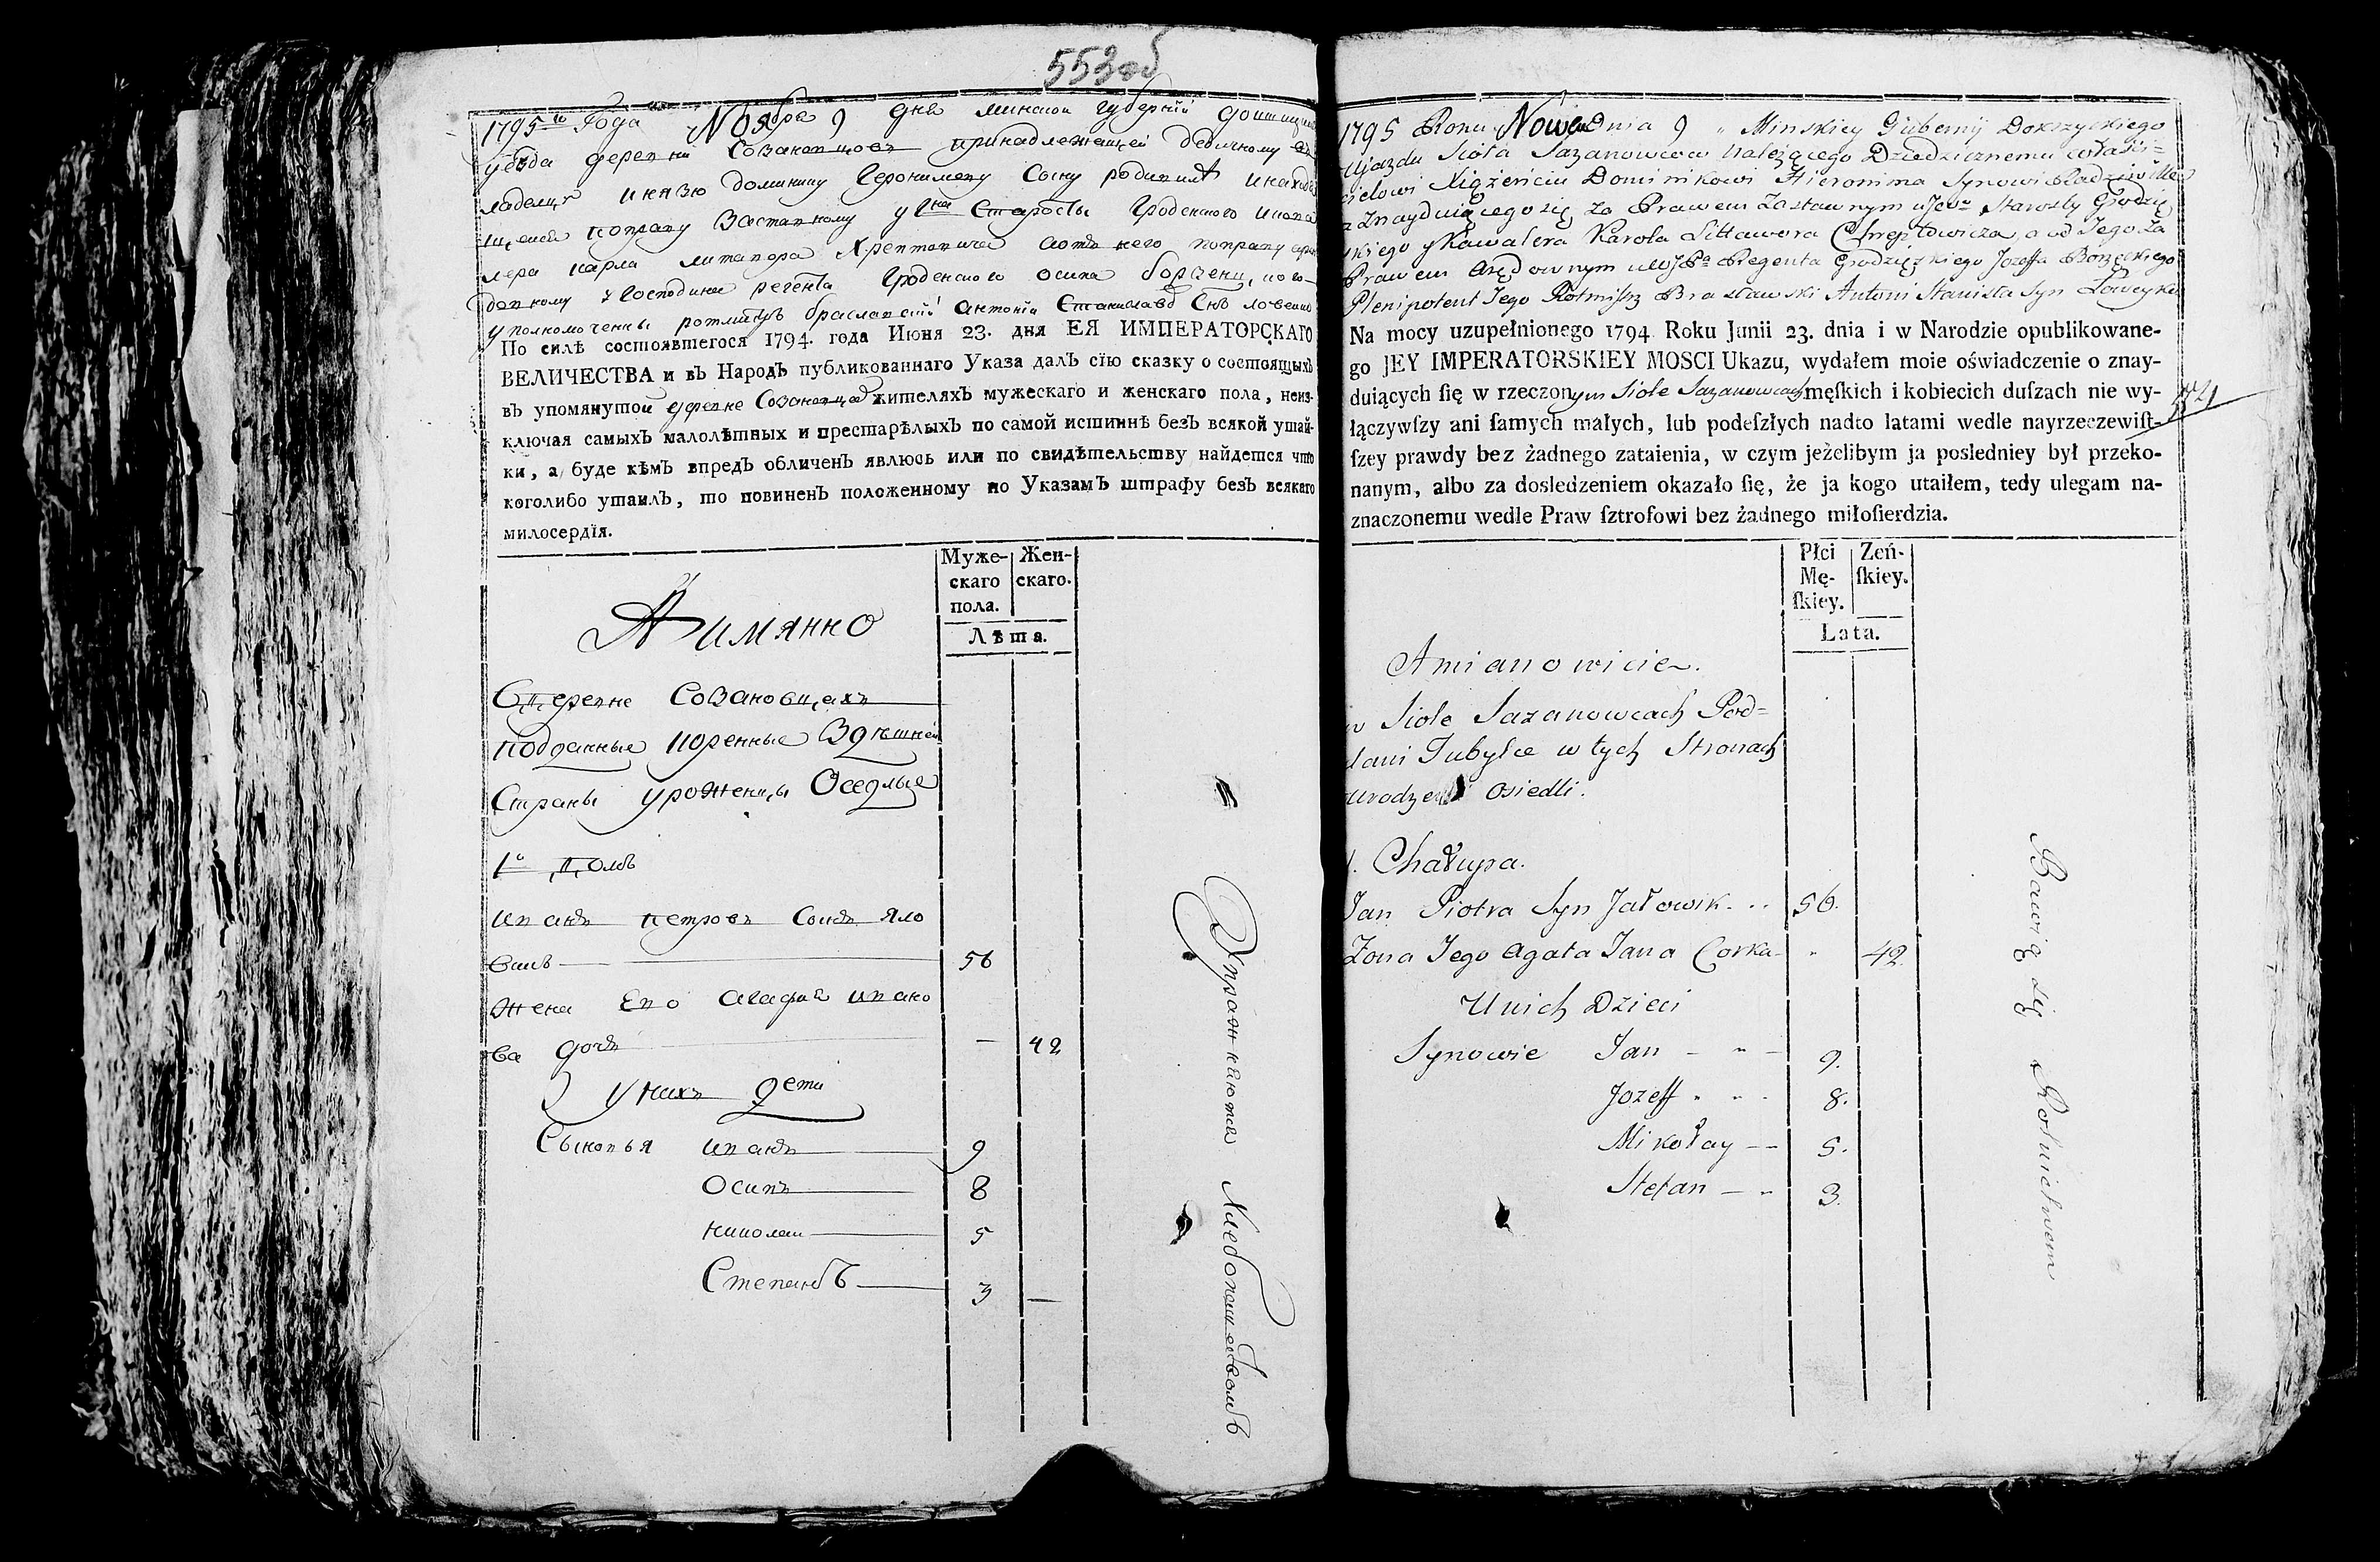 553об
1795го Года Ноября 9 дня минской губернии докшицкаго
уезда деревни Созановцовъ принадлежащей дедичному вла
дельцу князю доминику Геронимову Сыну родивилу и находя
щейся по праву Заставному у Старосты Гроденского и кава
лера карла литавора Хрептовича а отъ него по праву
Господина регента Гроденского осипа
уполномоченны ротмистръ браславский антоний Станиславовъ Снъ
По силѣ состоявшегося 1794. года Июня 23. дня ЕЯ ИМПЕРАТОРСКАГО
ВЕЛИЧЕСТВА и въ Народъ публикованнаго Указа далъ сїю сказку о состоящихъ
въ упомянутой деревне Созановцах жителяхъ мужескаго и женскаго пола, неиз-
ключая самыхъ малолѣтныхъ и престарѣлыхъ по самой истиннѣ безъ всякой утай-
ки, а буде кѣмъ впредъ обличенъ явлюсь или по свидѣтельству найдется что
коголибо утаилъ, то повиненъ положенному по Указамъ штрафу безъ всякаго
милосердїя.
Муже- Жен-
скаго скаго.
пола.
Лѣта.
А имянно
В деревне Созановцахъ
подданные коренные Здѣшней
Страны уроженцы Оседлые
1й Домъ
иванъ петровъ Сынъ Яло
викъ 56
Жена Ево агафия ивано
ва дочь — 42
У нихъ дети
Сыновья иванъ 9
Осипъ 8
николаи 5
Степанъ 3 —
Упражняются Хлебопашествомъ
1795 Roku Nowem Dnia 9 „ Minskiey Gubernij Dokszyckiego
Ujazdu Sioła Sazanowcow Należącego Dziedzicznemu właści=
cielowi Xiążęciu Dominikowi Hieronima Synowi Radziwiłło
a Znayduiącego się za Prawem Zastawnym u Starosty Grodzię
skiego y Kawalera Karola Littawora Chreptowicza, a od Jego Za
Prawem Arędownym u Regenta Grodzięskiego Jozeffa Borzęckiego
Plenipotent Jego Rotmistrz Brasławski Antoni Stanisła Syn Łoweyko
Na mocy uzupełnionego 1794 Roku Junii 23. dnia i w Narodzie opublikowane-
go JEY IMPERATORSKIEY MOSCI Ukazu, wydałem moie oświadczenie o znay-
duiących ſię w rzeczonym Siole Sazanowcach męſkich i kobiecich duſzach nie wy-
łączywſzy ani ſamych małych, lub podeſzłych nadto latami wedle nayrzeczewiſt-
ſzey prawdy bez żadnego zataienia, w czym jeżelibym ja posledniey był przeko-
nanym, albo za dosledzeniem okazało ſię, że ja kogo utaiłem, tedy ulegam na-
znaczonemu wedle Praw ſztrofowi bez żadnego miłoſierdzia.
Płci Zeń-
Mę- ſkiey.
ſkiey.
Lata.
A mianowicie.
w Siole Sazanowcach Pod=
dani Tubylce w tych Stronach
urodzeni osiedli.
1. Chałupa.
Jan Piotra Syn Jałowik 56.
Żona Jego Agata Jana Corka 42.
U nich Dzieci
Synowie Jan 9.
Jozeff 8.
Mikołay 5.
Stefan 3.
Bawią się Rolnictwem